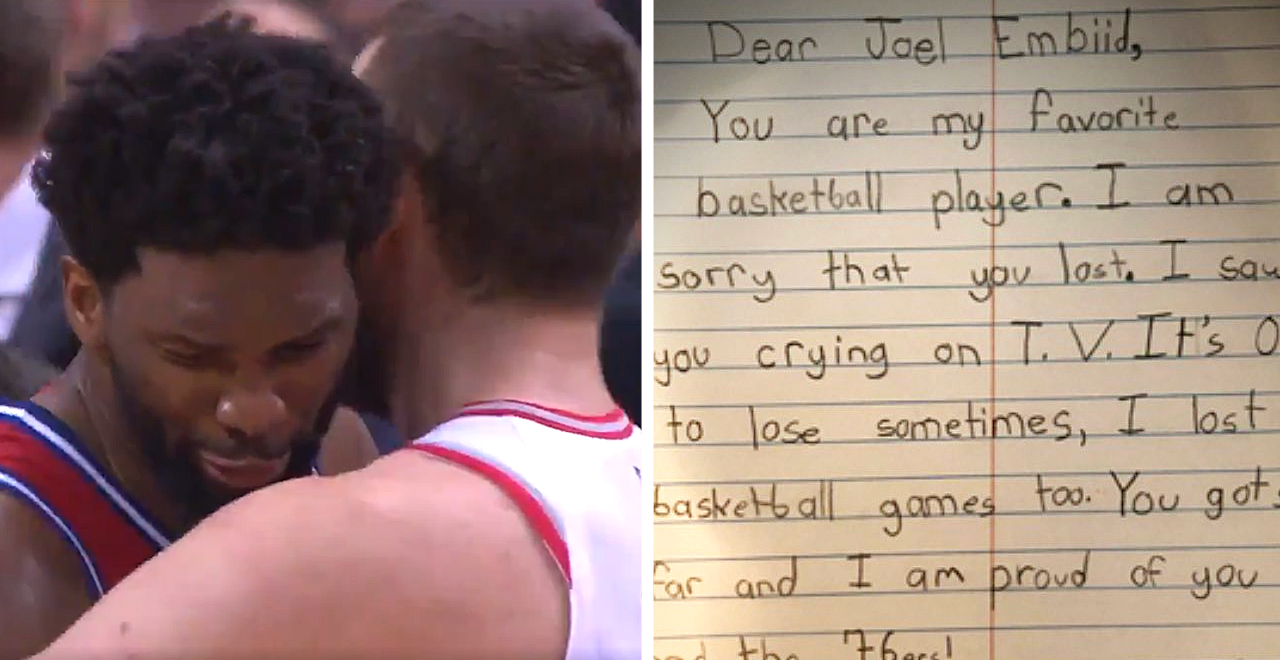 Dear Joel Embiid,
You are my favorite
basketball player. I am
sorry that you lost. I saw
you crying on T.V. It's O
to lose sometimes, I lost
basketball games too. You got
far and I am proud of you
the 76ers!